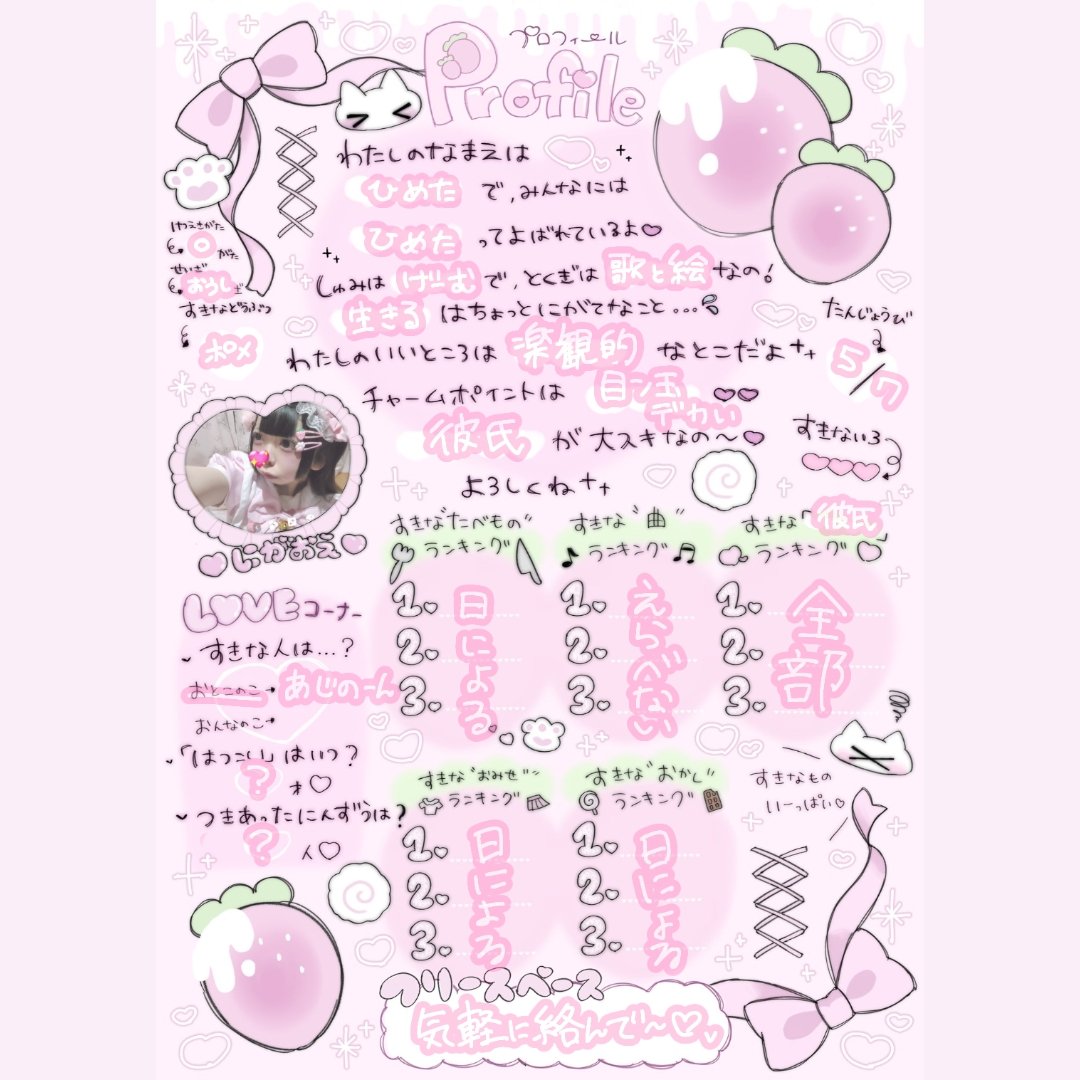 プロフィール
Profile
わたしのなまえは
ひめた で、みんなには
ひめた ってよばれているよ♡
しゅみは げーむ で、とくぎは 歌と絵 なの!
生きる はちょっとにがてなこと...
わたしのいいところは 楽観的 なとこだよ
チャームポイントは 目ン玉デカい
彼氏 が大スキなの〜♡
よろしくね
けつえきがた
O がた
せいざ
おうし ざ
すきなどうぶつ
ポメ
たんじょうび
5/7
すきないろ
♡♡♡
♡にがおえ♡
すきな"たべもの"
ランキング
1.
2.
3.
日による
すきな"曲"
ランキング
1.
2.
3.
えらべない
すきな「彼氏
ランキング
1.
2.
3.
全部
LOVEコーナー
すきな人は...?
おとこのこ→ あじのーん
おんなのこ→
「はつこい」はいつ?
? オ♡
つきあったにんずうは?
? 人♡
すきな"おみせ"
ランキング
1.
2.
3.
日による
すきな"おかし"
ランキング
1.
2.
3.
日による
すきなもの
いーっぱい♡
フリースペース
気軽に絡んで〜♡♡